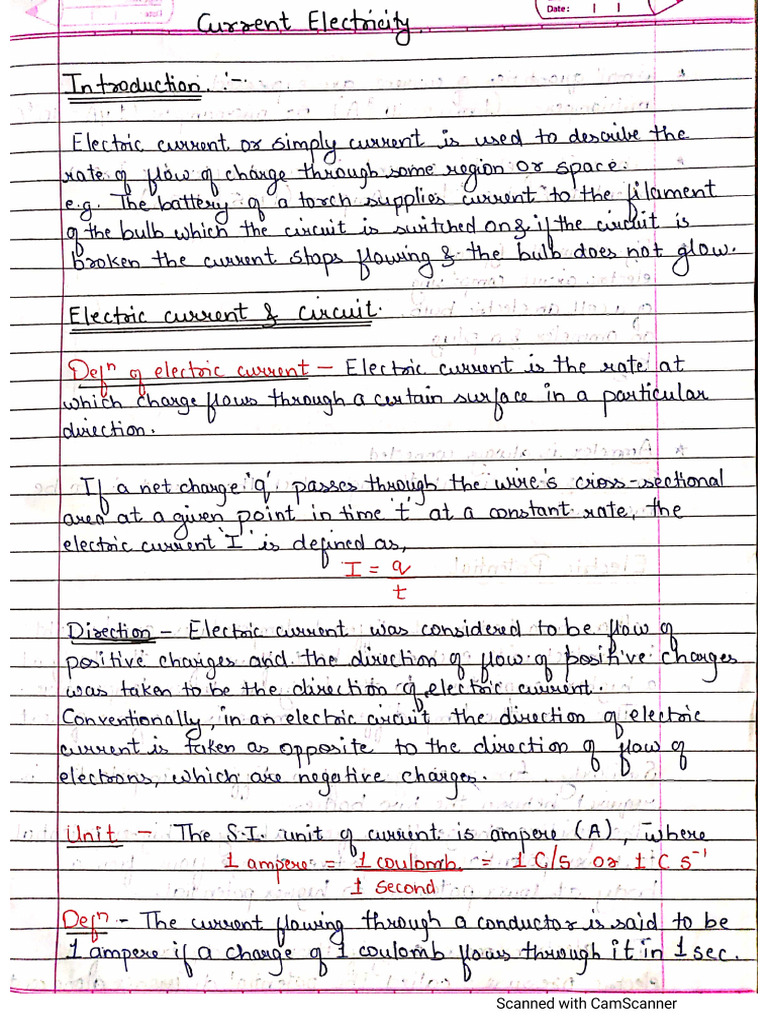 Date:
Current Electricity.
Introduction :-
Electric current or simply current is used to describe the
rate of flow of charge through some region or space.
e.g. The battery of a torch supplies current to the filament
of the bulb which the circuit is switched on & if the circuit is
broken the current stops flowing & the bulb does not glow.
Electric current & circuit.
Defⁿ of electric current – Electric current is the rate at
which charge flows through a certain surface in a particular
direction.
If a net charge 'q' passes through the wire's cross-sectional
area at a given point in time 't' at a constant rate, the
electric current 'I' is defined as,
I = q
t
Direction – Electric current was considered to be flow of
positive charges and the direction of flow of positive charges
was taken to be the direction of electric current.
Conventionally, in an electric circuit the direction of electric
current is taken as opposite to the direction of flow of
electrons, which are negetive charges.
Unit – The S.I. unit of current is ampere (A), where
1 ampere = 1 coulomb = 1 C/s or 1 C s⁻¹
1 second
Defⁿ - The current flowing through a conductor is said to be
1 ampere if a charge of 1 coulomb flows through it in 1 sec.
Scanned with CamScanner